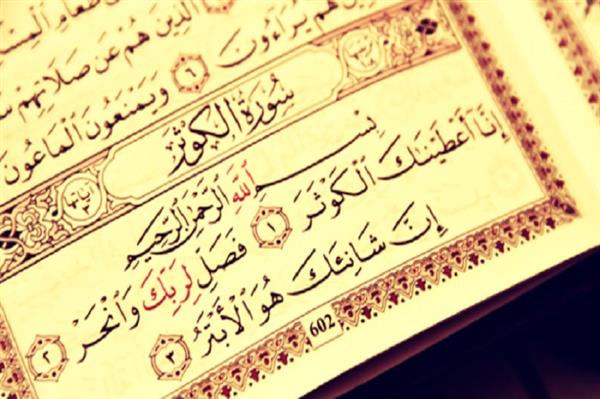 طَعَامِ الْمِسْ
الَّذِينَ هُمْ عَن صَلَاتِهِمْ
هُمْ يُرَآءُونَ ٦ وَيَمْنَعُونَ الْمَاعُونَ
سُورَةُ الْكَوْثَرِ
آياتها ٣
بِسْمِ اللَّهِ الرَّحْمَٰنِ الرَّحِيمِ
إِنَّآ أَعْطَيْنَٰكَ الْكَوْثَرَ ١ فَصَلِّ لِرَبِّكَ وَانْحَرْ ٢
إِنَّ شَانِئَكَ هُوَ الْأَبْتَرُ ٣
602